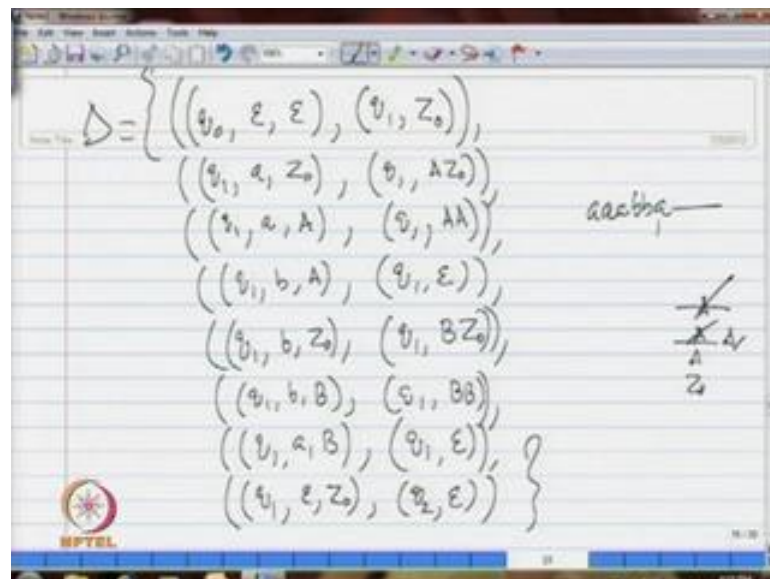 Δ = { ((q₀, ε, ε), (q₁, Z₀)),
((q₁, a, Z₀), (q₁, AZ₀)),
((q₁, a, A), (q₁, AA)),
((q₁, b, A), (q₁, ε)),
((q₁, b, Z₀), (q₁, BZ₀)),
((q₁, b, B), (q₁, BB)),
((q₁, a, B), (q₁, ε)),
((q₁, ε, Z₀), (q₂, ε)) }
aaabba
A
A A
A
Z₀
NPTEL